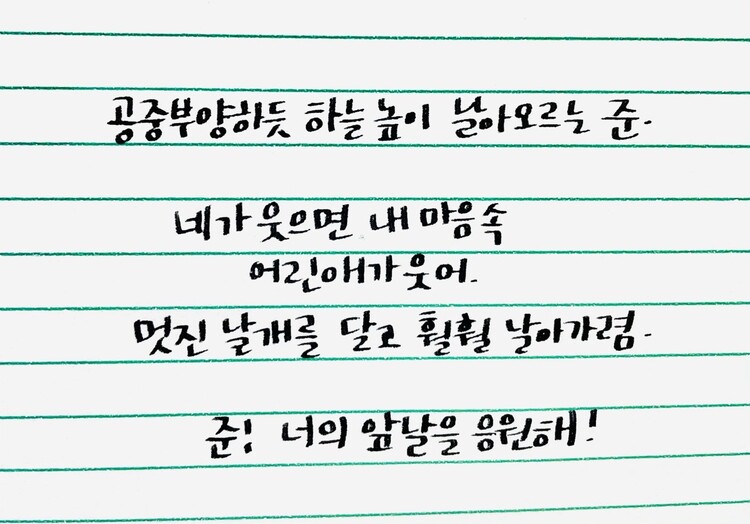 공중부양하듯 하늘높이 날아오르는 준.
네가 웃으면 내 마음속
어린애가 웃어.
멋진 날개를 달고 훨훨 날아가렴.
준! 너의 앞날을 응원해!